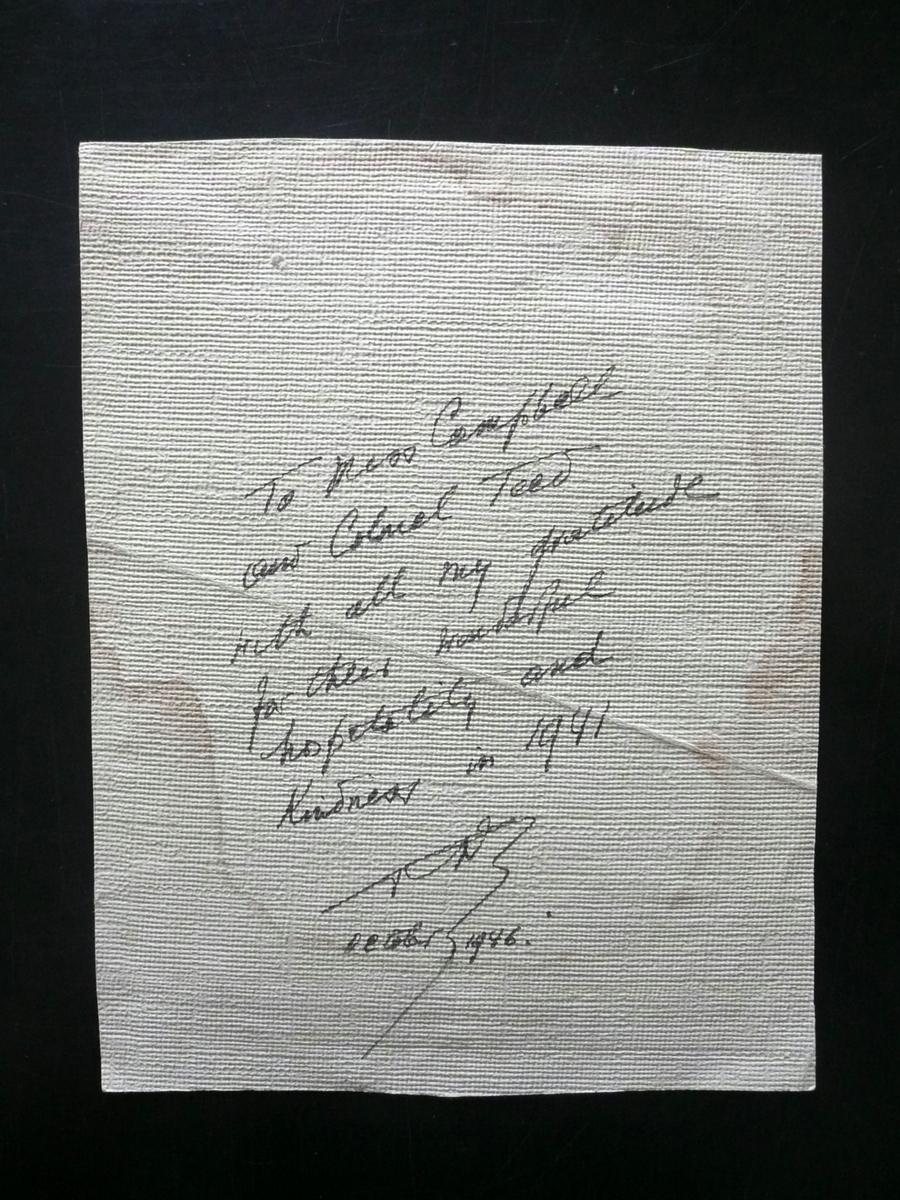 To Miss Campbell
and Colonel Teed
with all my gratitude
for their wonderful
hospitality and
Kindness in 1941
October 1946.